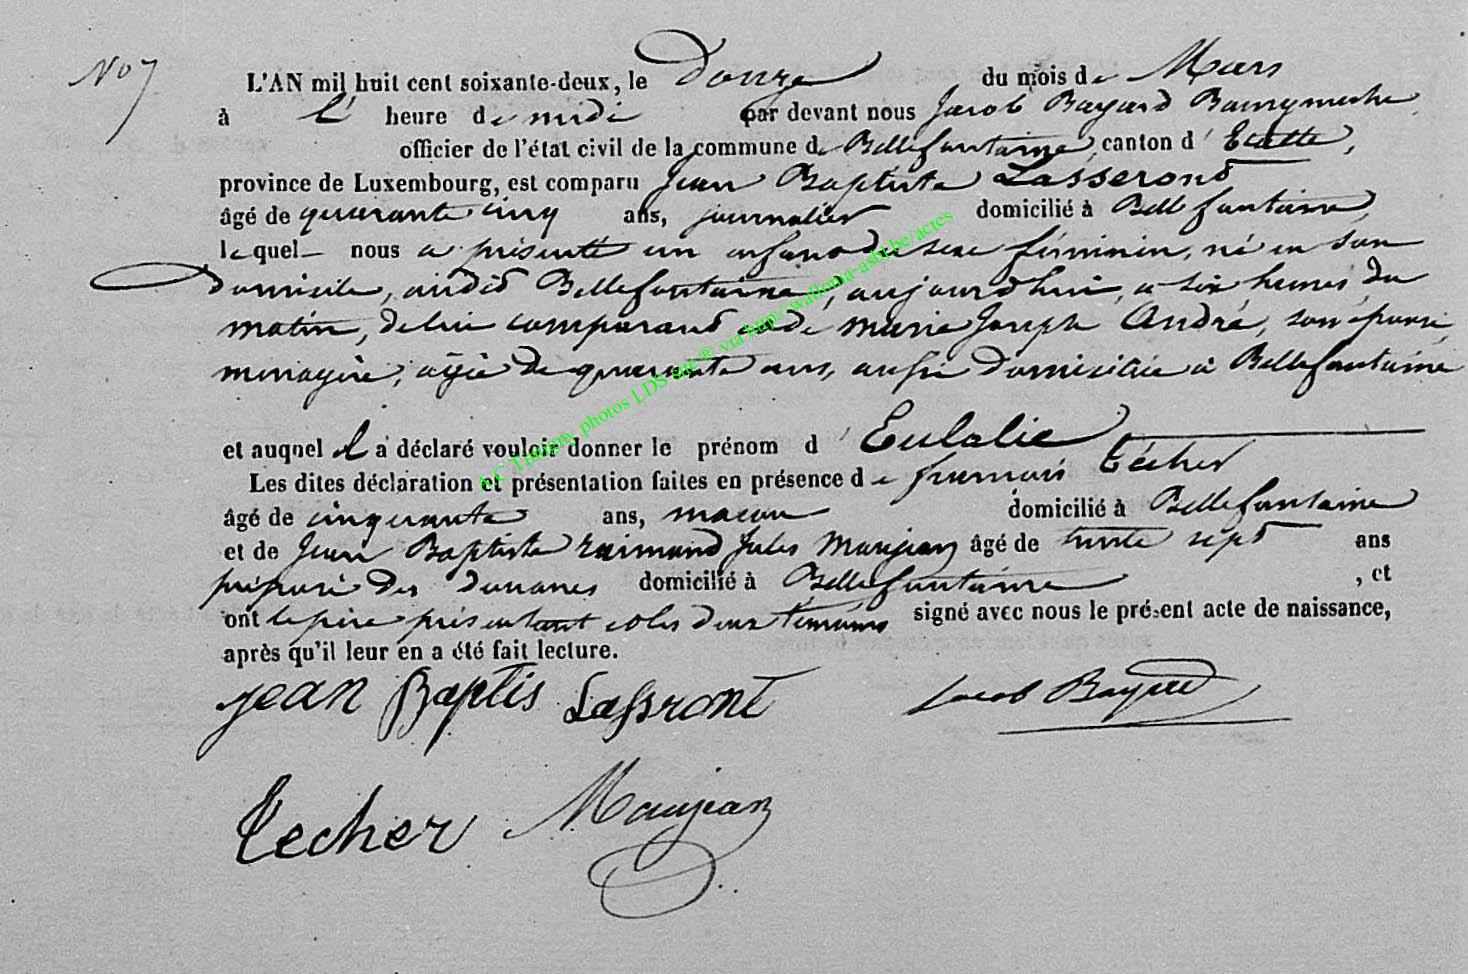 No 7
L'AN mil huit cent soixante-deux, le Douze du mois de Mars
à L' heure de midi par devant nous Jacob Bayard Bourgmestre
officier de l'état civil de la commune de Bellefontaine, canton d' Etalle,
province de Luxembourg, est comparu Jean Baptiste Lasserond
âgé de quarante cinq ans, journalier domicilié à Bellefontaine,
lequel nous a présenté un enfant de sexe féminin, né en son
domicile, audit Bellefontaine, aujourd'hui, a six heures du
matin, de lui comparant et de Marie Joseph André, son épouse,
menagère, agée de quarante ans, aussi domiciliée à Bellefontaine
et auquel il a déclaré vouloir donner le prénom d' Eulalie
Les dites déclaration et présentation faites en présence de françois técher
âgé de cinquante ans, macon domicilié à Bellefontaine
et de Jean Baptiste raimond Jules Maujean âgé de trente sept ans
préposé des douanes domicilié à Bellefontaine, et
ont le père présentant et les deux témoins signé avec nous le présent acte de naissance,
après qu'il leur en a été fait lecture.
jean Baptis Lassront Jacob Bayard
Techer Maujean
A.C Tintigny photos LDS slc ® via http://wallonia-asbl.be/actes